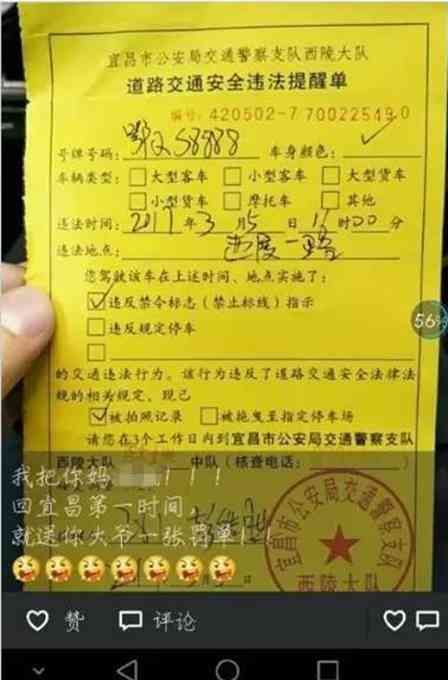 宜昌市公安局交通警察支队西陵大队
道路交通安全违法提醒单
编号:420502-7 70022549 0
号牌号码: 车身颜色:
车辆类型: 大型客车 小型客车 大型货车
小型货车 摩托车 其他
违法时间: 2017 年 3 月 5 日 时 00 分
违法地点: 一路
您驾驶该车在上述时间、地点实施了:
违反禁令标志(禁止标线)指示
违反规定停车
的交通违法行为。该行为违反了道路交通安全法律法
规的相关规定,现已
被拍照记录 被拖曳至指定停车场
请您在3个工作日内到宜昌市公安局交通警察支队
西陵大队 中队(核查电话:
我把你妈 !!!
回宜昌第一时间,
就送你大爷一张罚单!!
宜昌市公安局交通警察支队
西陵大队
56
赞 评论